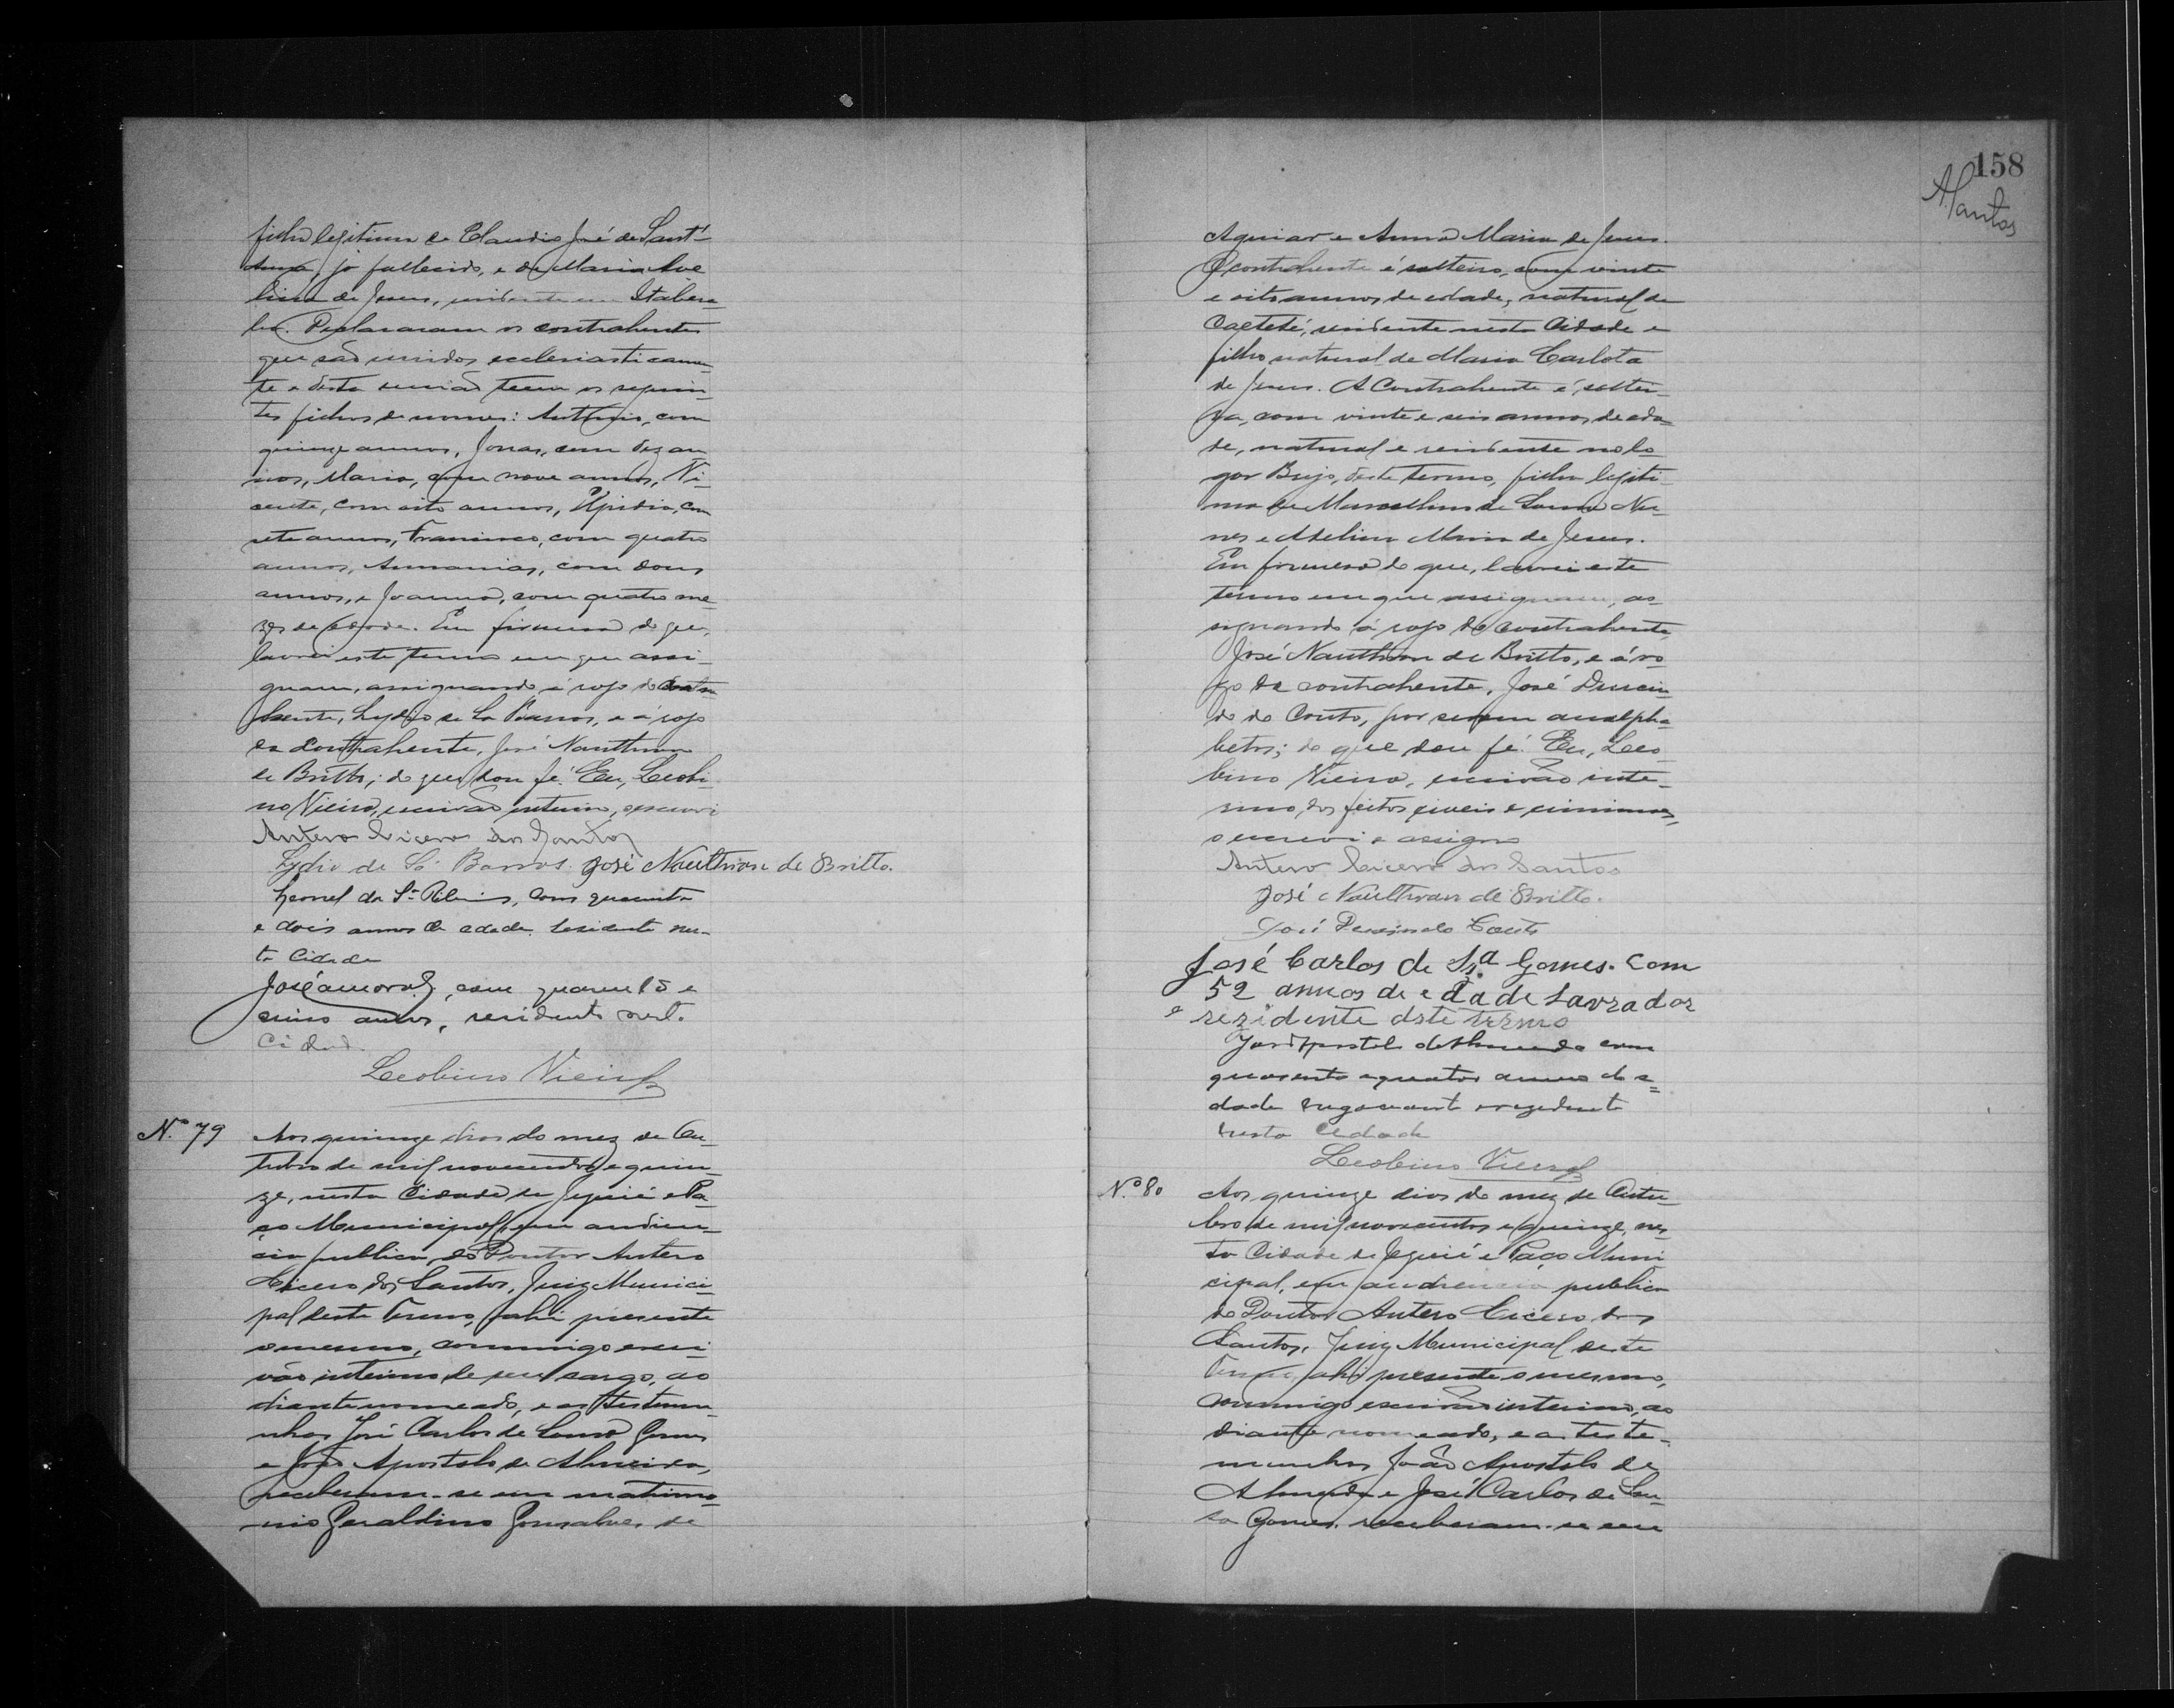 filha legitima de Claudio José de Sant'
Anna, já fallecido, e de Maria Ave
lina de Jesus, residente em Itabera
ba. Declararam os contrahentes
que são unidos ecclesiasticamen
te e desta união teem os seguin
tes filhos de nomes: Anthonio, com
quinze annos, Jonas, com dez an
nos, Maria, com nove annos, Vi
cente, com oito annos, Elpidio, com
sete annos, Francisco, com quatro
annos, Ananias, com dous
annos, e Joanna, com quatro me
zes de edade. Em firmesa do que,
lavrei este termo em que assi-
gnam, assignando á rogo do contra
hente, Lydio de Sá Barros, e á rogo
da contrahente, José Naulthman
de Britto; do que dou fé. Eu, Leobi
no Vieira, escrivão interino, o escrevi
Antero Cicero dos Santos
Lydio de Sá Barros. José Naulthman de Britto.
Leonel da Sª Ribeiro, com quarenta
e dois annos de edade residente nes
ta cidade
José Amoral, com quarenta e
cinco annos, residente nest.
Cidad.
Leobino Vieira
N.º 79 Aos quinze dias do mez de Ou-
tubro de mil novecentos e quin-
ze, nesta Cidade de Jequié e Pa-
ço Municipal, em audien-
cia publica do Doutor Antero
Cicero dos Santos, Juiz Munici-
pal deste Termo, ahi presente
o mesmo, commigo escri-
vão interino de seu cargo, ao
diante nomeado, e as testemu
nhas José Carlos de Sousa Gomes
e João Apostolo de Almeida,
receberam-se em matrimo-
nio Geraldino Gonsalves de
158
ASantos
Aguiar e Anna Maria de Jesus.
O contrahente é solteiro, com vinte
e oito annos de edade, natural de
Caeteté, residente nesta Cidade e
filho natural de Maria Carlota
de Jesus. A Contrahente é soltei-
ra, com vinte e seis annos de eda
de, natural e residente no lo-
gar Brejo, deste termo, filha legiti-
ma de Marcellino de Sousa Nu-
nes e Adelina Maria de Jesus.
Em firmesa do que, lavrei este
termo em que assignam, as-
signando á rogo do contrahente
José Naulthman de Britto, e á ro-
go da contrahente, José Durcin
do do Couto, por serem analpha
betos; do que dou fé. Eu, Leo
bino Vieira, escrivão inte-
rino, dos feitos civeis e criminaes,
o escrevi e assigno
Antero Cicero dos Santos
José Naulthman de Britto.
José Couto
José Carlos de Sª Gomes. com
52 annos de edade Lavrador
e rezidente dste Termo
João Apostolo de Almeida com
quarenta e quatro annos de e=
dade negociante e rezidente
nesta Cidade
Leobino Vieira
N.º 80 Aos quinze dias do mez de Outu-
bro de mil novecentos e quinze, nes
ta Cidade de Jequié e Paço Muni
cipal, em audiencia publica
do Doutor Antero Cicero dos
Santos, Juiz Municipal deste
Termo ahi presente o mesmo,
commigo escrivão interino, ao
diante nomeado, e as teste-
munhas João Apostolo de
Almeida e José Carlos de Sou-
sa Gomes. receberam-se em